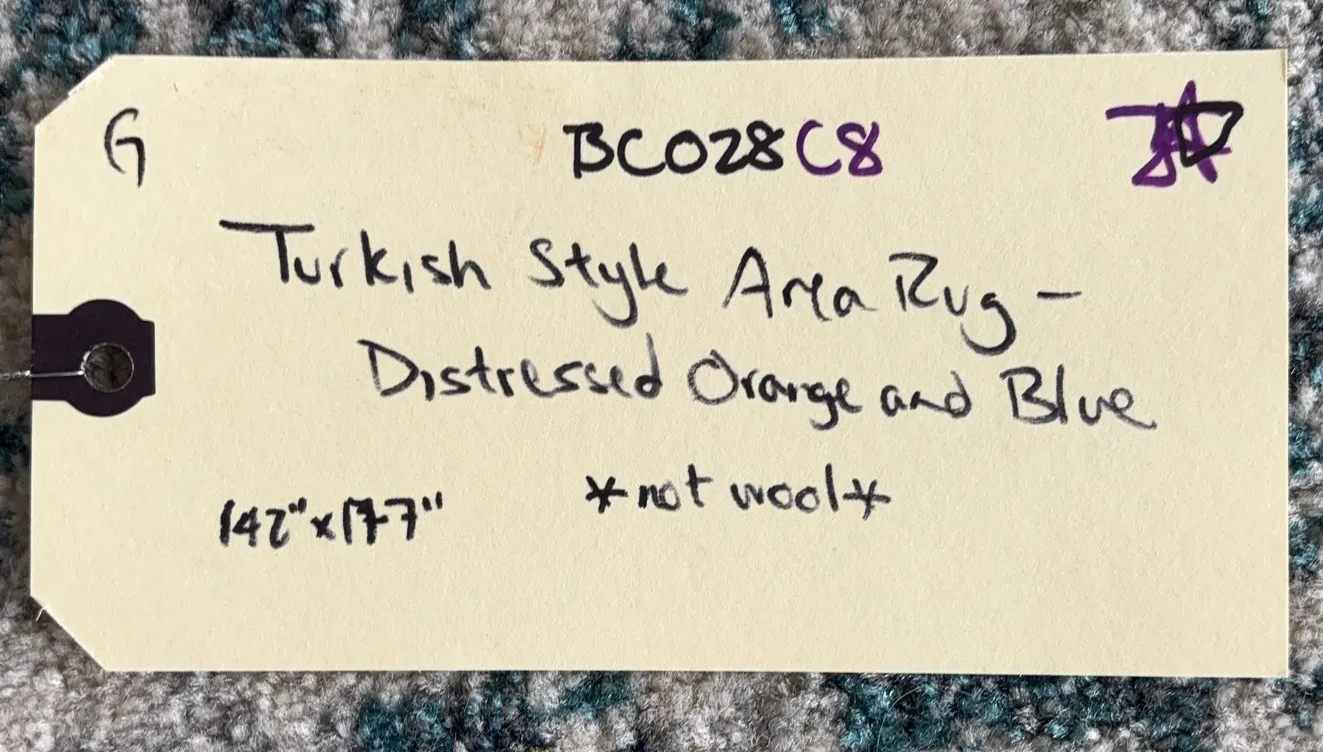 G
BC028C8
Turkish Style Area Rug -
Distressed Orange and Blue
*not wool*
142" x 177"